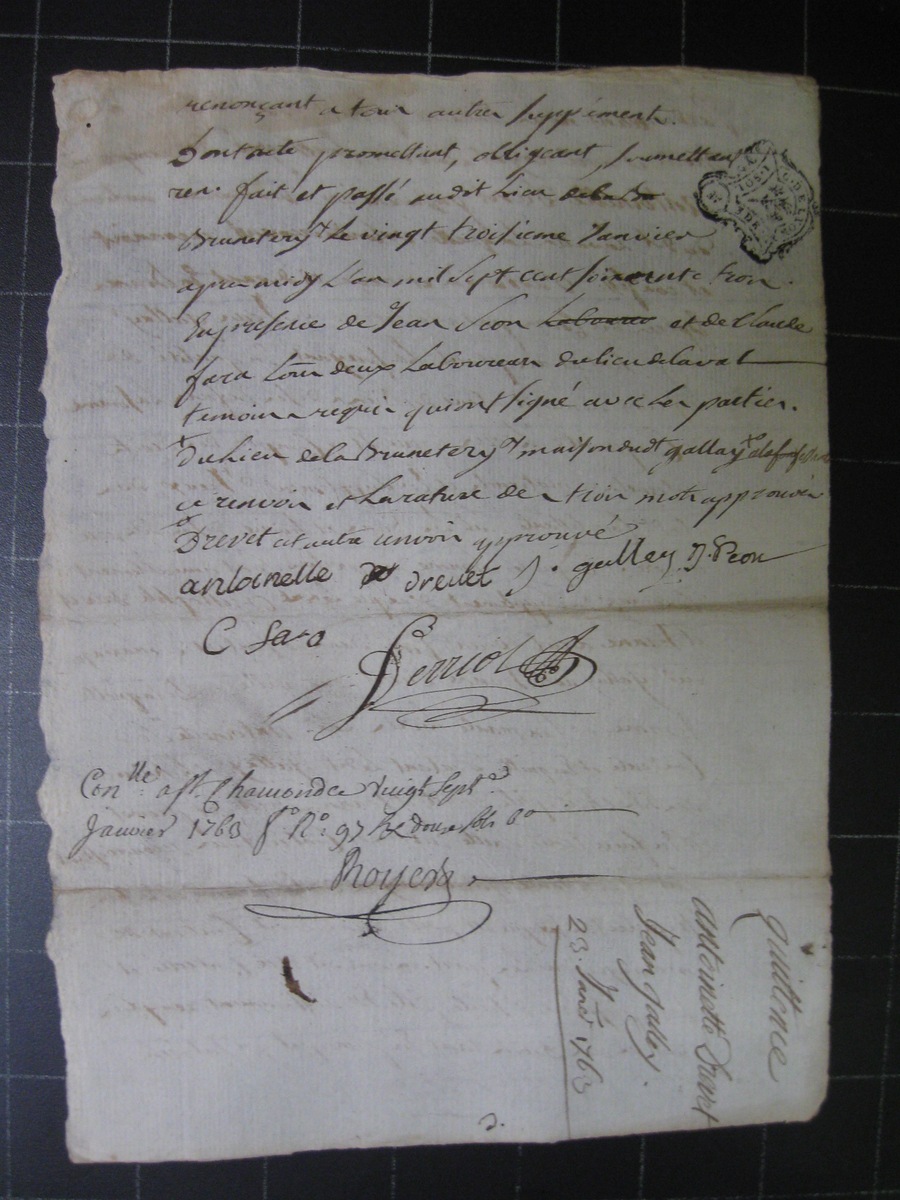 renonçant a tous autres suppément.
Dont acte promettant, obligeant, soumettant
ren. fait et passé audit lieu dela
Brunetery le vingt troisieme Janvier
apres midy L'an mil sept cent soixante trois.
En presence de Jean Peon Laboure et de Claude
fara tous deux Laboureurs du lieu delaval
temoins requis qui ont signé avec les parties.
Du Lieu de la Brunetery maison dudt gallay
ce renvois et La rature de trois mots approuvés
Drevet et autre renvois approuvé
antoinelle drevet J. galley J. Peon
C fara
Ferriol
Conlle. a st. Chamond ce vingt sept
Janvier 1763 fo Ro. 97 Re douze sols
Royer
quittence
antoinette Drevet
Jean galley.
23. Janer 1763